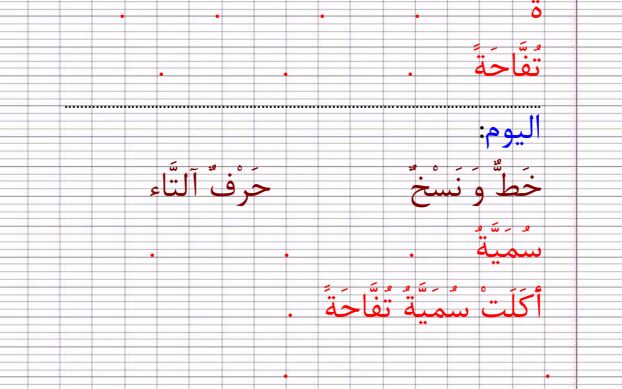 ة . . . . .
تُفَّاحَةً . . .
اليوم:
خَطٌّ وَ نَسْخٌ حَرْفٌ آلتَّاء
سُمَيَّةُ . . .
أَكَلَتْ سُمَيَّةُ تُفَّاحَةً .
. .